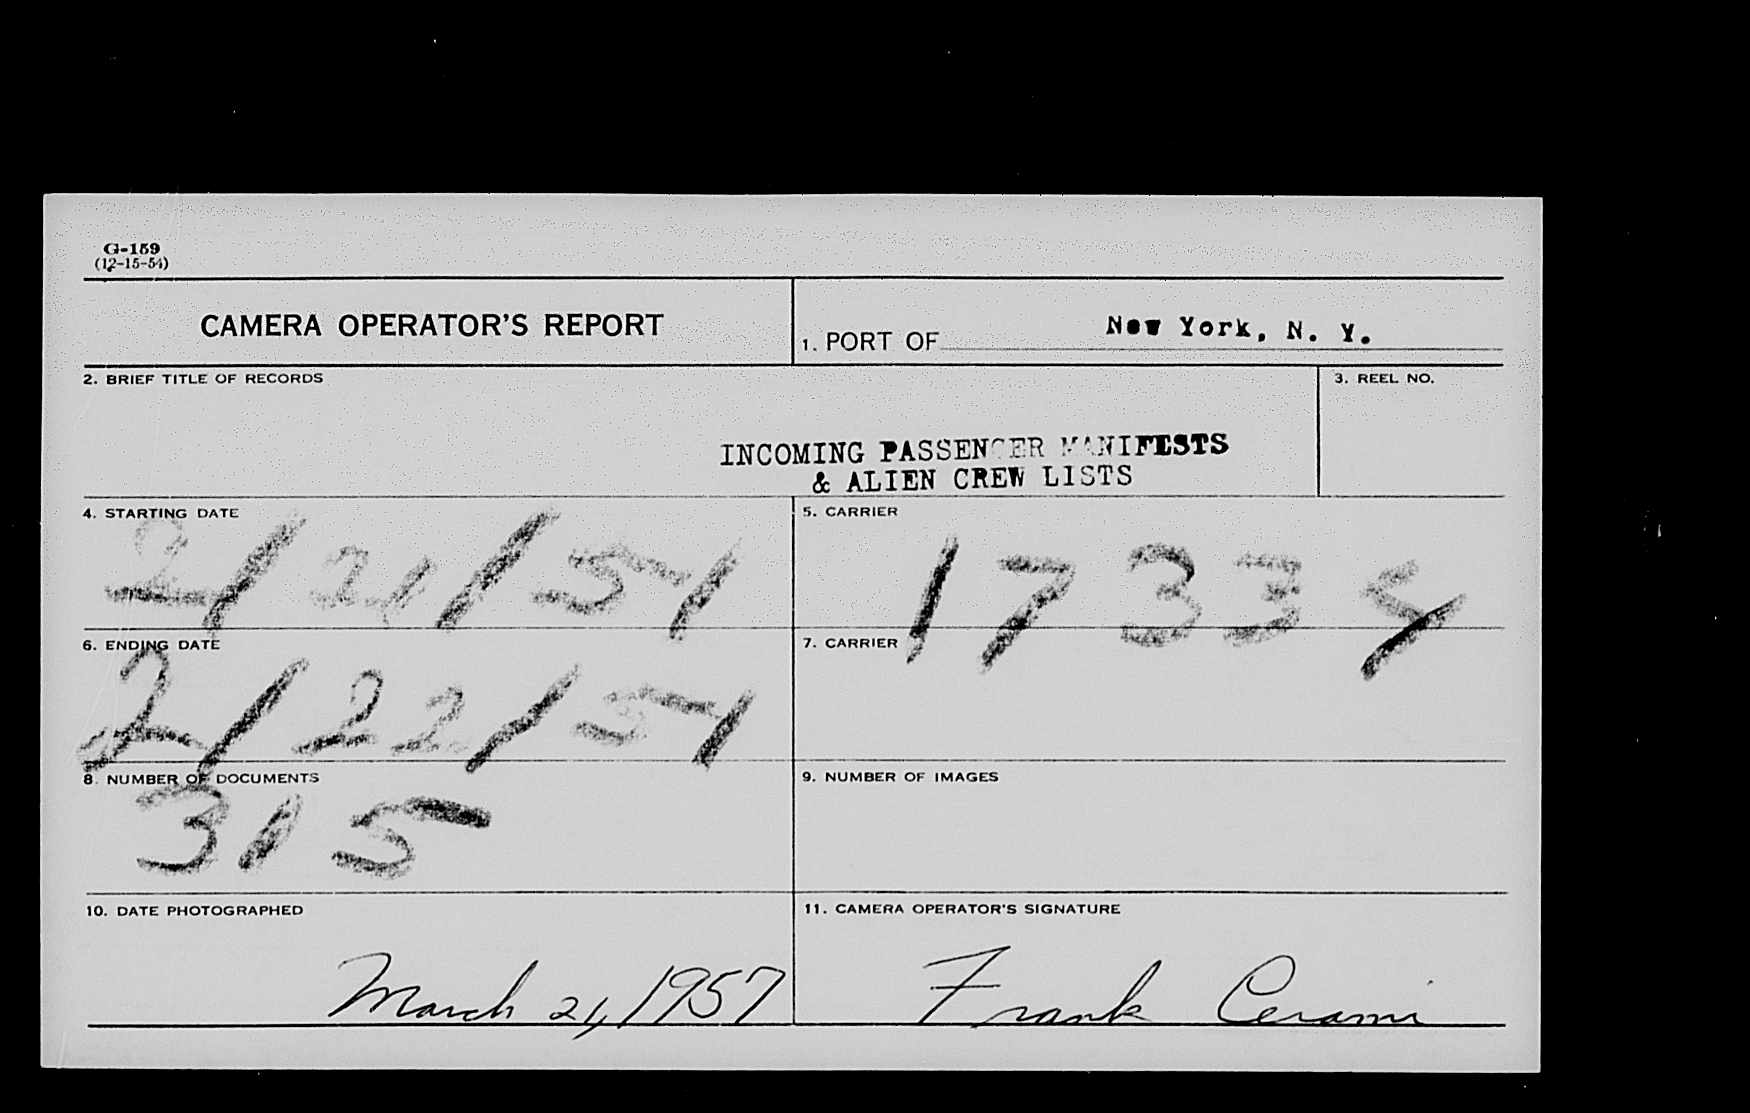 G-159
(12-15-54)
CAMERA OPERATOR'S REPORT
1. PORT OF New York, N. Y.
2. BRIEF TITLE OF RECORDS
3. REEL NO.
INCOMING PASSENGER MANIFESTS
& ALIEN CREW LISTS
4. STARTING DATE
2/21/51
5. CARRIER
17334
6. ENDING DATE
2/22/51
7. CARRIER
8. NUMBER OF DOCUMENTS
315
9. NUMBER OF IMAGES
10. DATE PHOTOGRAPHED
March 21, 1957
11. CAMERA OPERATOR'S SIGNATURE
Frank Cerami